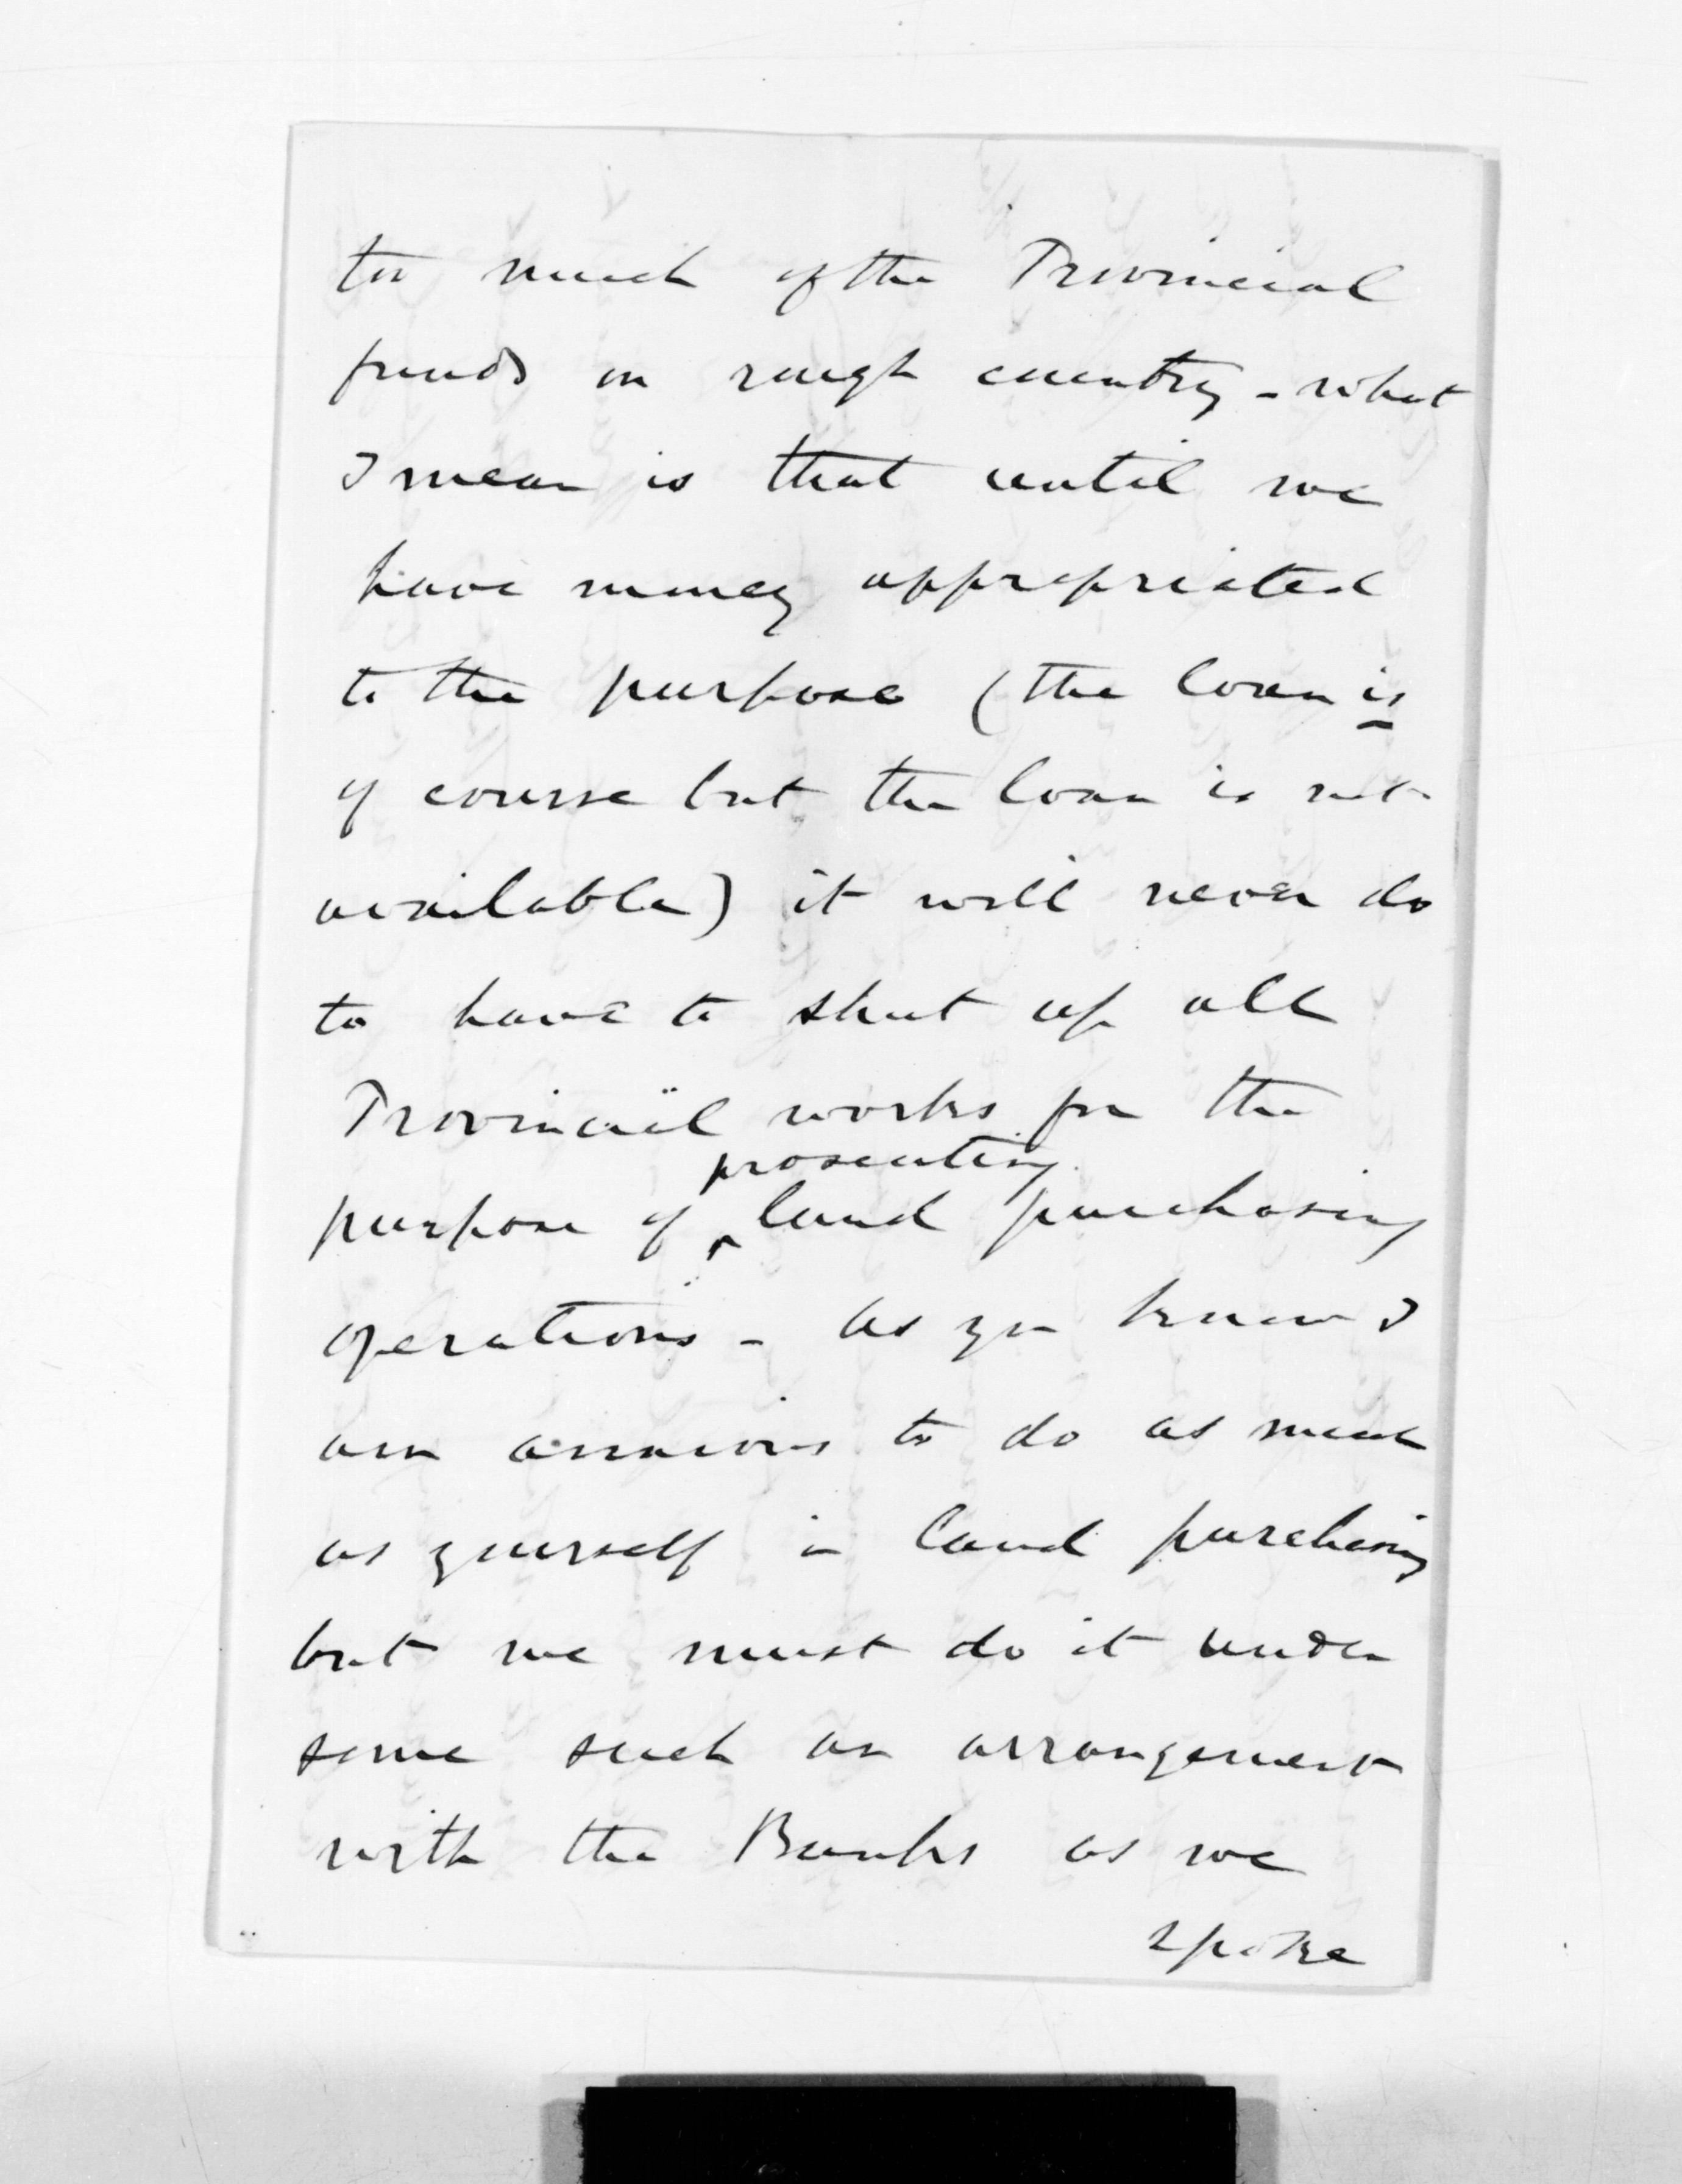 too much of the Provincial
funds on rough country - what
I mean is that until we
have money appropriated
to the purpose (the loan is
of course but the loan is not
available) it will never do
to have to shut up all
Provincial works for the
prosecuting
purpose of ‸ land purchasing
operations - As you know I
am anxious to do as much
as yourself in land purchasing
but we must do it under
some such an arrangement
with the Banks as we
spoke